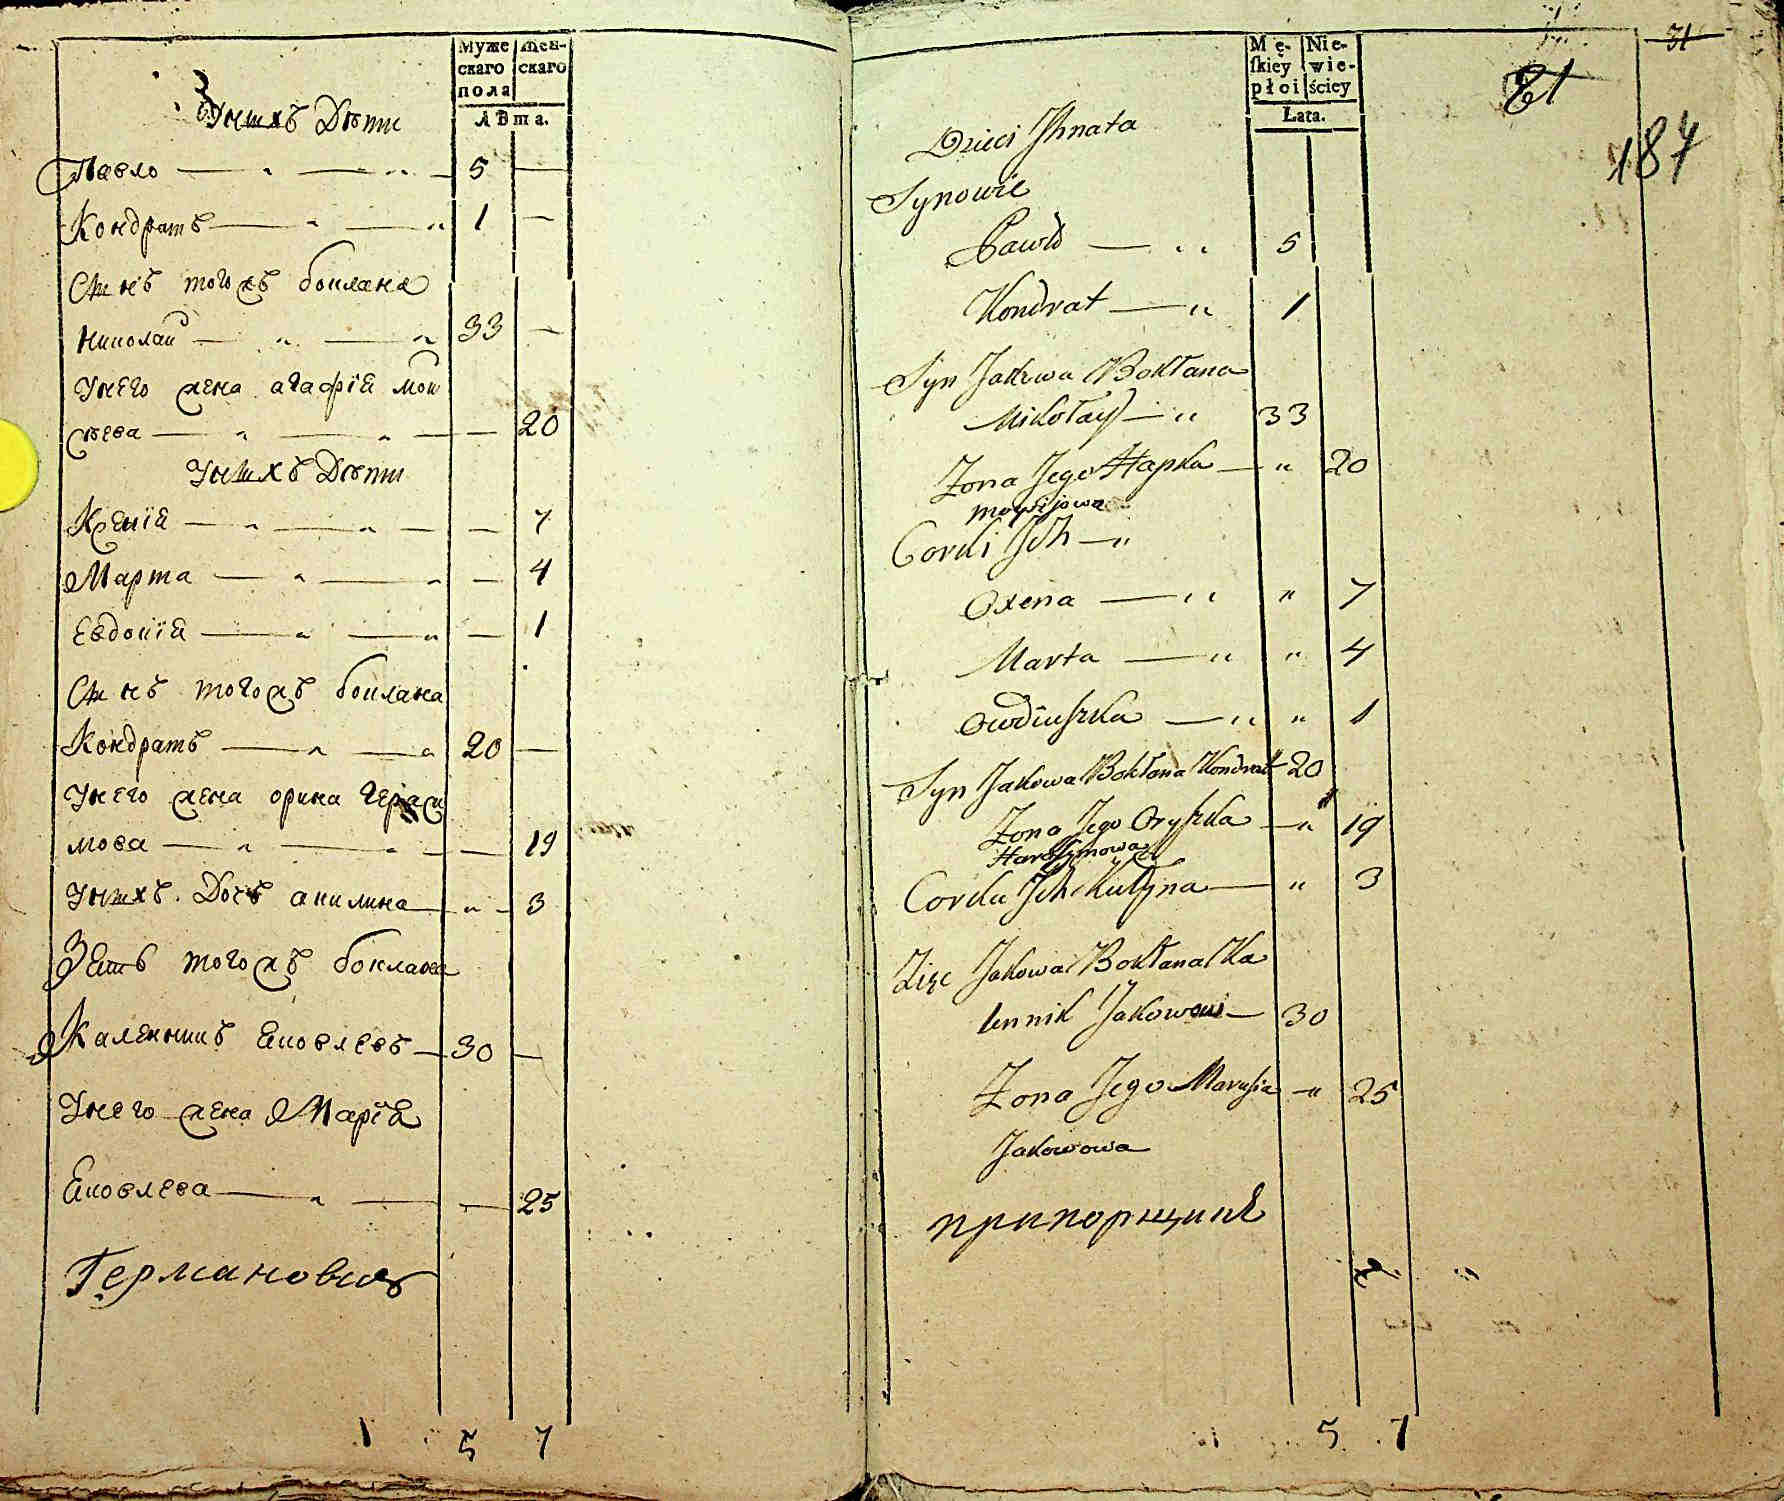 Муже скаго пола
Жен- скаго
Лѣта.
У нихъ Дѣти
Павло — " — " — 5 —
Кондратъ — " — " 1 —
Сынъ тогожъ боклана
Николай — " — " 33 —
У него жена агафїя мои
сѣева — " — " — — 20
У нихъ Дѣти
Ксенїя — " — " — — 7
Марта — " — " — 4
Евдокїя — " — " — 1
Сынъ тогожъ боклана
Кондратъ — " — " 20 —
У него жена орина Гераси
мова — " — " — — 19
У нихъ Дочь акилина — " — 3
Зять тогожъ боклана
Каленикъ Яковлевъ — 30 —
У него жена Марїя
Яковлева — " — — 25
Германовичъ
1 5 7
Mę- skiey płci
Nie- wie- ściey
Łata.
31
81
187
Dzieci Ihnata
Synowie
Pawło — " 5
Kondrat — " 1
Syn Jakowa Bokłana
Mikołay — " 33
Zona Jego Hapka — " 20
Moysijowa
Corki Ich — "
Oxena — " " 7
Marta — " " 4
Owdiuszka — " " 1
Syn Jakowa Bokłana Kondrat 20
Zona Jego Oryszka — " 19
Harasymowa
Corka Ich Kulyna — " 3
Zięc Jakowa Bokłana Ka
lennik Jakowow — 30
Zona Jego Marusia — " 25
Jakowowa
прапорщикъ
5 7